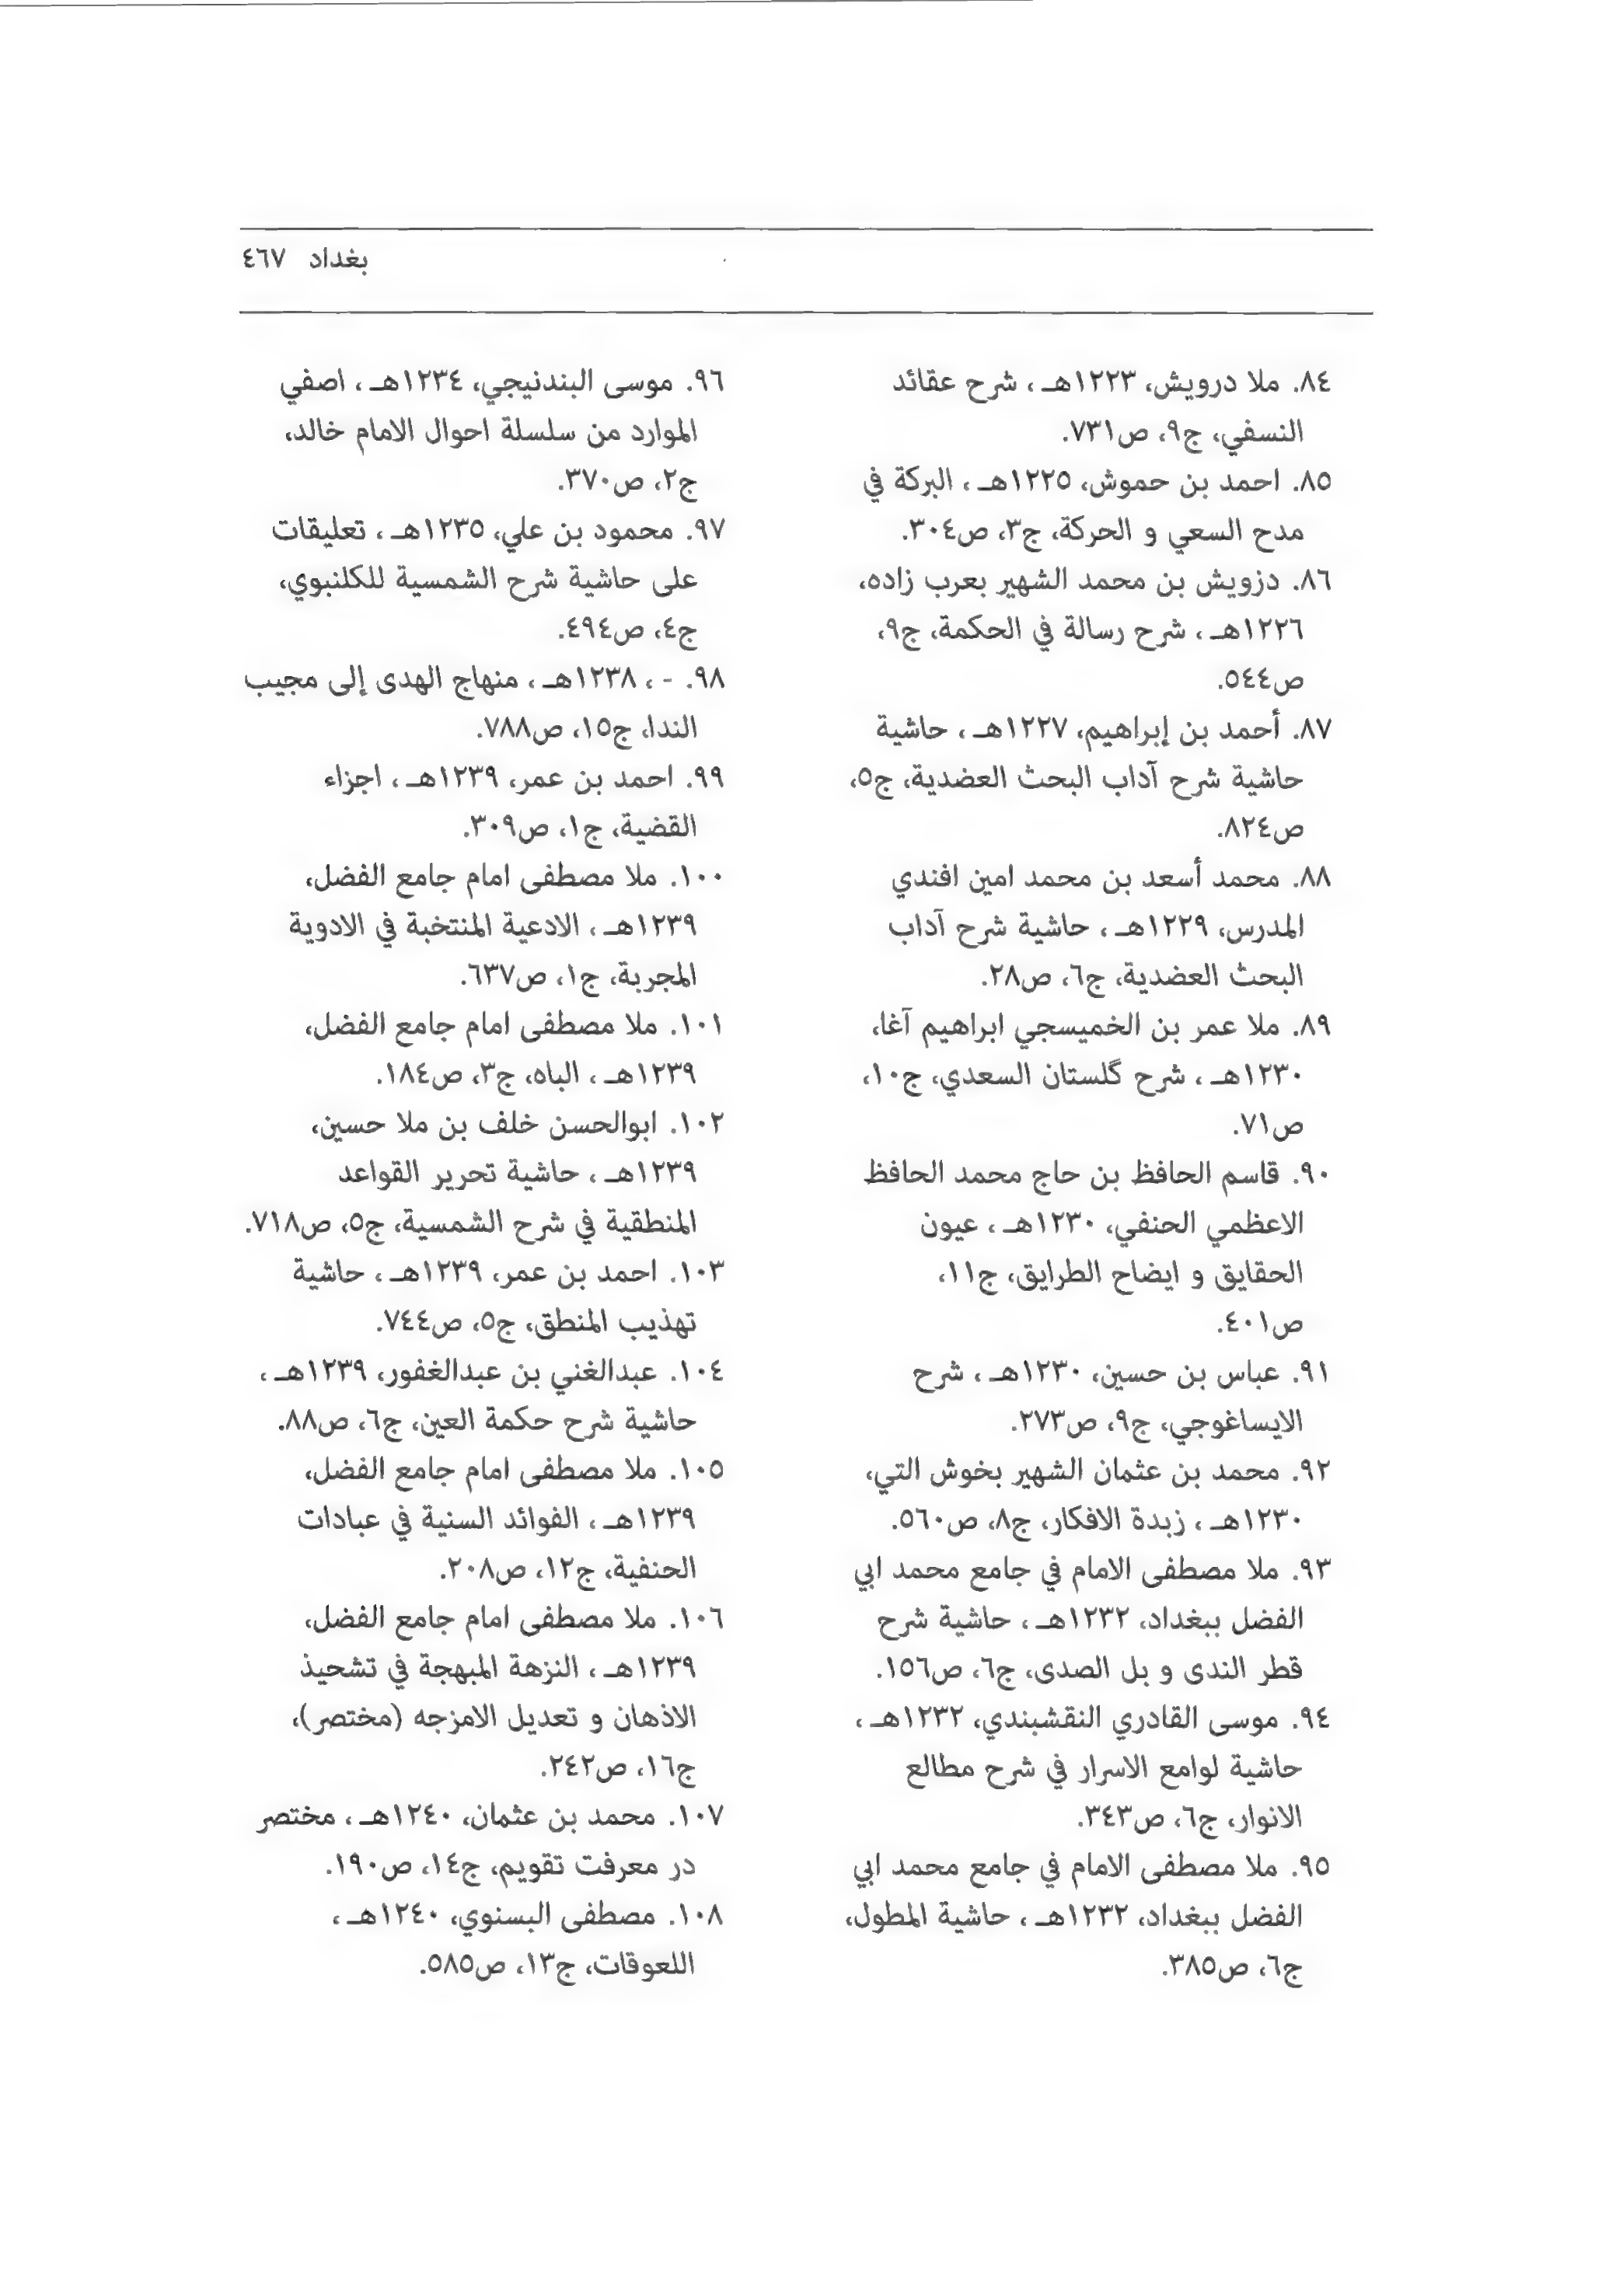 بغداد ٤٦٧
٨٤. ملا درويش، ١٢٢٣هـ ، شرح عقائد
النسفي، ج٩، ص٧٣١.
٨٥. احمد بن حموش، ١٢٢٥هـ ، البركة في
مدح السعي و الحركة، ج٣، ص٣٠٤.
٨٦. دزويش بن محمد الشهير بعرب زاده،
١٢٢٦هـ ، شرح رسالة في الحكمة، ج٩،
ص٥٤٤.
٨٧. أحمد بن إبراهيم، ١٢٢٧هـ ، حاشية
حاشية شرح آداب البحث العضدية، ج٥،
ص٨٢٤.
٨٨. محمد أسعد بن محمد امين افندي
المدرس، ١٢٢٩هـ ، حاشية شرح آداب
البحث العضدية، ج٦، ص٢٨.
٨٩. ملا عمر بن الخميسجي ابراهيم آغا،
١٢٣٠هـ ، شرح گلستان السعدي، ج١٠،
ص٧١.
٩٠. قاسم الحافظ بن حاج محمد الحافظ
الاعظمي الحنفي، ١٢٣٠هـ ، عيون
الحقايق و ايضاح الطرايق، ج١١،
ص٤٠١.
٩١. عباس بن حسين، ١٢٣٠هـ ، شرح
الايساغوجي، ج٩، ص٢٧٣.
٩٢. محمد بن عثمان الشهير بخوش التي،
١٢٣٠هـ ، زبدة الافكار، ج٨، ص٥٦٠.
٩٣. ملا مصطفى الامام في جامع محمد ابي
الفضل ببغداد، ١٢٣٢هـ ، حاشية شرح
قطر الندى و بل الصدى، ج٦، ص١٥٦.
٩٤. موسى القادري النقشبندي، ١٢٣٢هـ ،
حاشية لوامع الاسرار في شرح مطالع
الانوار، ج٦، ص٣٤٣.
٩٥. ملا مصطفى الامام في جامع محمد ابي
الفضل ببغداد، ١٢٣٢هـ ، حاشية المطول،
ج٦، ص٣٨٥.
٩٦. موسى البندنيجي، ١٢٣٤هـ ، اصفي
الموارد من سلسلة احوال الامام خالد،
ج٢، ص٣٧٠.
٩٧. محمود بن علي، ١٢٣٥هـ ، تعليقات
على حاشية شرح الشمسية للكلنبوي،
ج٤، ص٤٩٤.
٩٨. - ، ١٢٣٨هـ ، منهاج الهدى إلى مجيب
الندا، ج١٥، ص٧٨٨.
٩٩. احمد بن عمر، ١٢٣٩هـ ، اجزاء
القضية، ج١، ص٣٠٩.
١٠٠. ملا مصطفى امام جامع الفضل،
١٢٣٩هـ ، الادعية المنتخبة في الادوية
المجربة، ج١، ص٦٣٧.
١٠١. ملا مصطفى امام جامع الفضل،
١٢٣٩هـ ، الباه، ج٣، ص١٨٤.
١٠٢. ابوالحسن خلف بن ملا حسين،
١٢٣٩هـ ، حاشية تحرير القواعد
المنطقية في شرح الشمسية، ج٥، ص٧١٨.
١٠٣. احمد بن عمر، ١٢٣٩هـ ، حاشية
تهذيب المنطق، ج٥، ص٧٤٤.
١٠٤. عبدالغني بن عبدالغفور، ١٢٣٩هـ ،
حاشية شرح حكمة العين، ج٦، ص٨٨.
١٠٥. ملا مصطفى امام جامع الفضل،
١٢٣٩هـ ، الفوائد السنية في عبادات
الحنفية، ج١٢، ص٢٠٨.
١٠٦. ملا مصطفى امام جامع الفضل،
١٢٣٩هـ ، النزهة المبهجة في تشحيذ
الاذهان و تعديل الامزجه (مختصر)،
ج١٦، ص٢٤٢.
١٠٧. محمد بن عثمان، ١٢٤٠هـ ، مختصر
در معرفت تقويم، ج١٤، ص١٩٠.
١٠٨. مصطفى البسنوي، ١٢٤٠هـ ،
اللعوقات، ج١٣، ص٥٨٥.